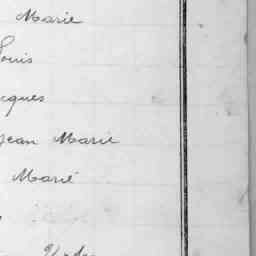 Marie
Louis
cques
Jean Marie
Marie